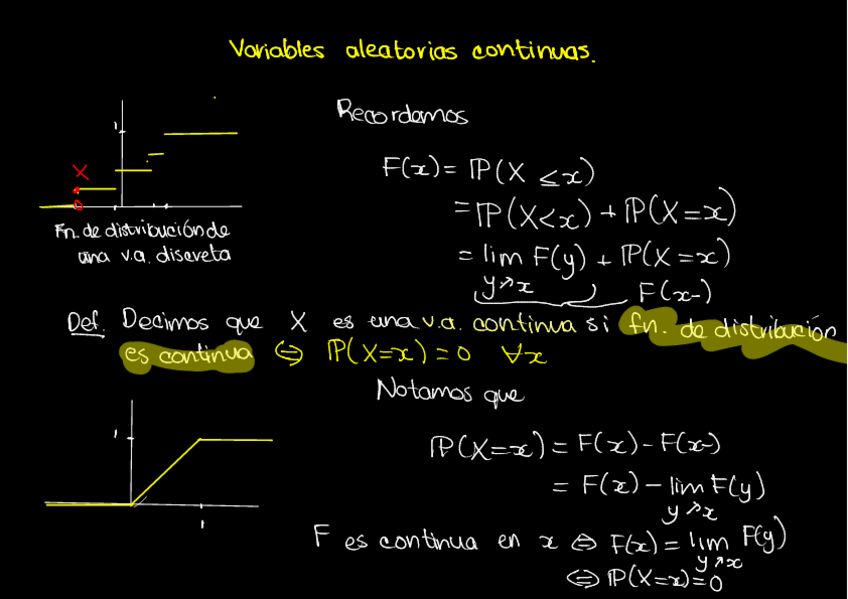 Variables aleatorias continuas.
Recordamos
1
X
F(x) = ℙ(X ≤ x)
= ℙ(X < x) + ℙ(X = x)
= lim F(y) + ℙ(X = x)
y↗x
F(x-)
Fn. de distribución de
una v.a. discreta
Def. Decimos que X es una v.a. continua si fn. de distribución
es continua ⇔ ℙ(X=x) = 0 ∀x
Notamos que
1
1
ℙ(X=x) = F(x) - F(x-)
= F(x) - lim F(y)
y↗x
F es continua en x ⇔ F(x) = lim F(y)
y↗x
⇔ ℙ(X=x) = 0